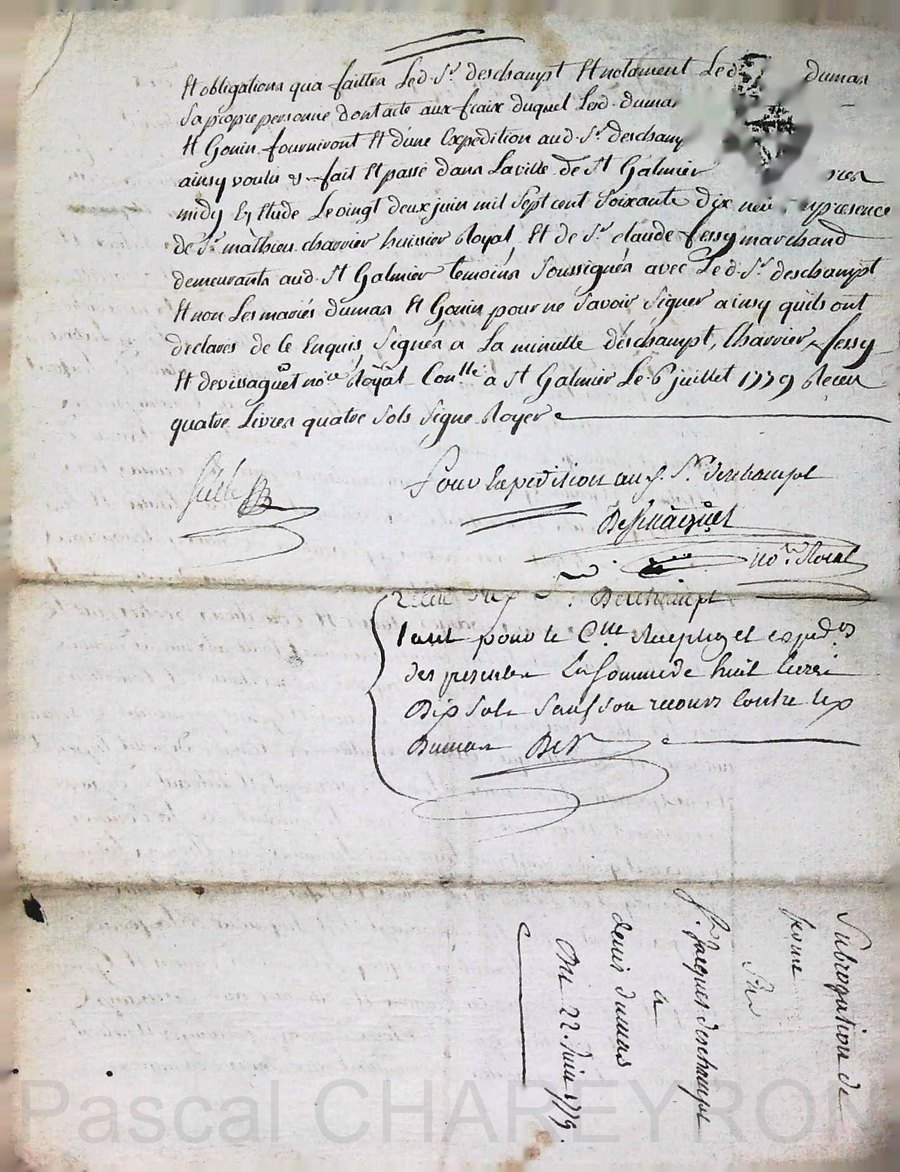 Et obligations qua faittes Led. Sr. deschampt Et notament Led dumas
Sa propre personne dont acte aux fraix duquel Lesd. dumas
Et Gonin fourniront Et d'une Expedition aud. Sr. deschamp
ainsy voulu & fait Et passé dans La ville de St Galmier
midy En Etude Le vingt deux juin mil Sept cent Soixante dix neu presence
de Sr. mathieu charvier huissier Royal, Et de Sr. claude fessy marchand
demeurants aud. St Galmier temoins Soussignés avec Led. Sr. deschampt
Et non Les mariés dumas Et Gonin pour ne Savoir Signer ainsy quils ont
declarés de ce Enquis Signés a La minutte deschampt, Charvier, fessy
Et devissaguet nore Royal Conlle a St Galmier Le 6 juillet 1779 Receu
quatre Livres quatre Sols Signé Royer
Pour Expedition aud. Sr. deschampt
Devissaguet
nore. Roial
Sr. Deschampt
tant pour le Clle Reception et expedon
des presentes La Somme de huit livres
Dix Sols Sauf Son recours Contre les
Dumas DeV
Subrogation de
ferme
Par
Sr. Jacques deschampt
a
denis dumas
Du 22. Juin 1779.
Pascal CHAREYRON